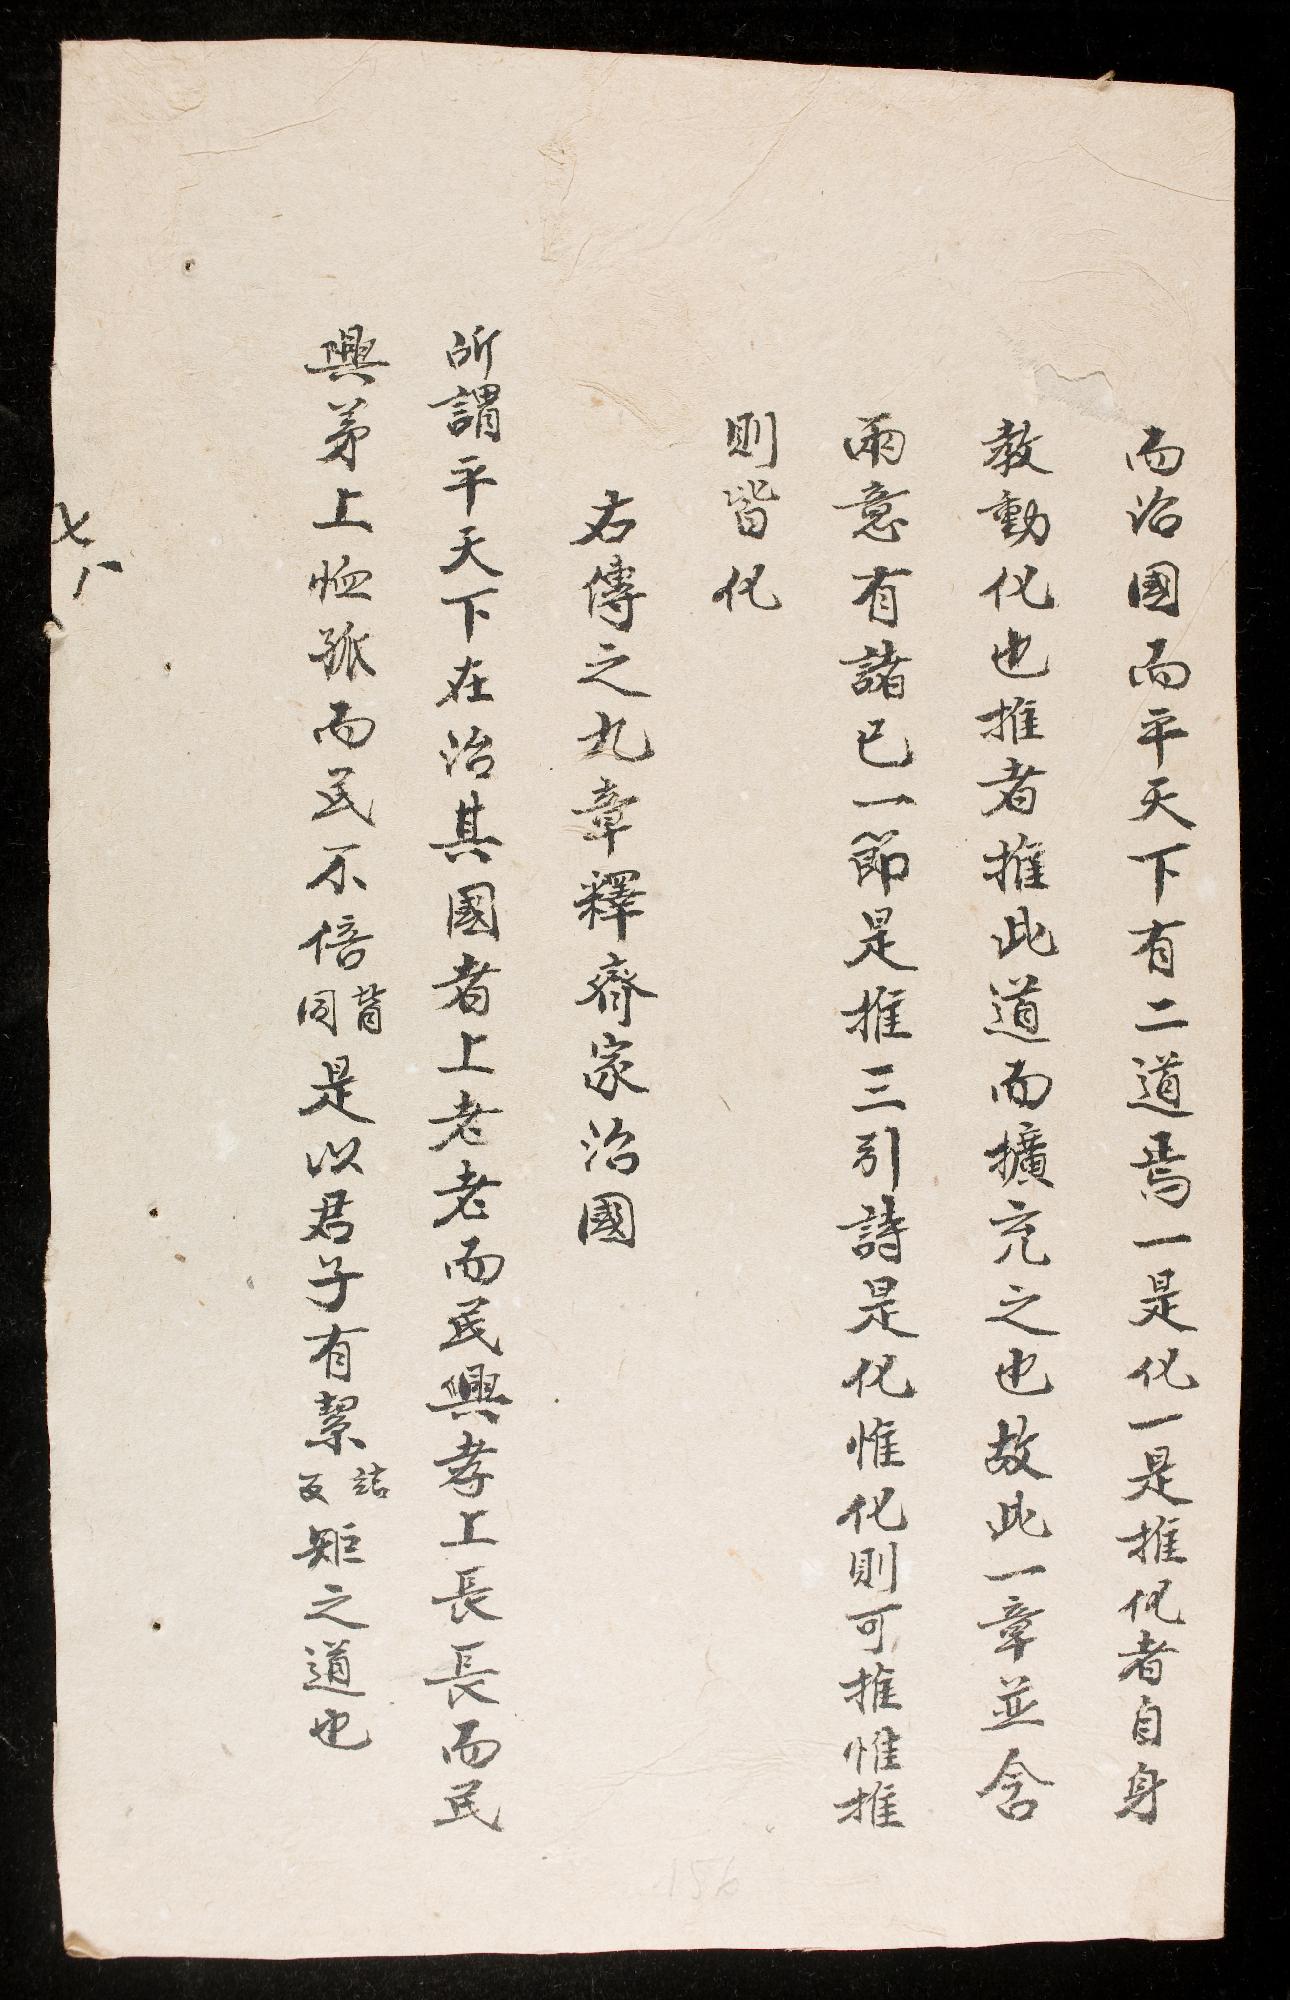 而治國而平天下有二道焉一是化一是推化者自身
教動化也推者推此道而擴充之也故此一章並含
兩意有諸已一節是推三引詩是化惟化則可推惟推
則皆化
右傳之九章釋齊家治國
所謂平天下在治其國者上老老而民興孝上長長而民
興弟上恤孤而民不倍背同是以君子有絜詰反矩之道也
七八
156